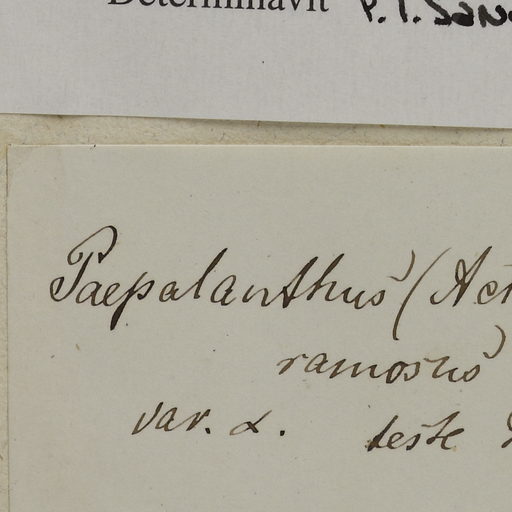 Determinavit P.T. San
Paepalanthus (Act
ramosus)
var. α. teste